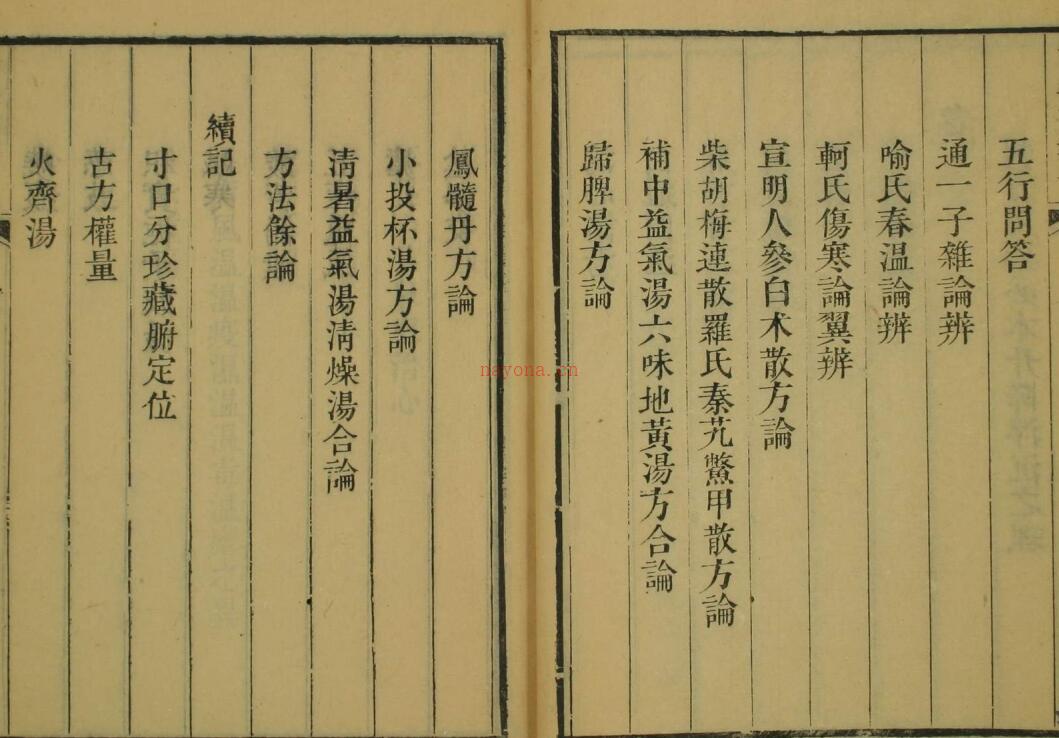 五行問答
通一子雜論辨
喻氏春溫論辨
軻氏傷寒論翼辨
宣明人參白术散方論
柴胡梅連散羅氏秦艽鱉甲散方論
補中益氣湯六味地黃湯方合論
歸脾湯方論
鳳髓丹方論
小投杯湯方論
淸暑益氣湯淸燥湯合論
方法餘論
續記
寸口分珍藏腑定位
古方權量
火齊湯
nayona.cn